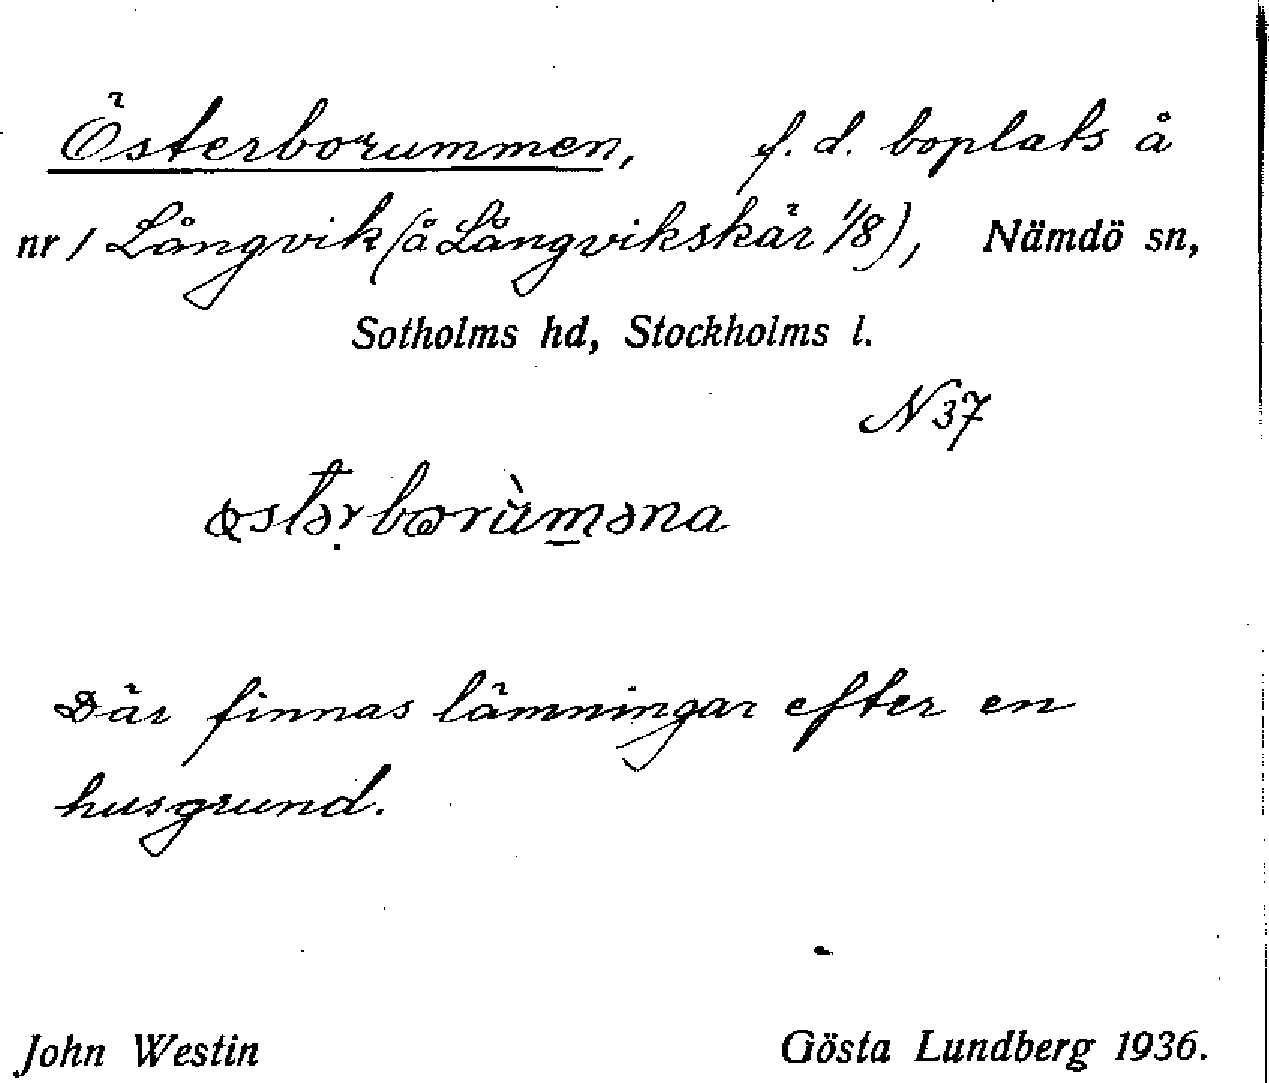 Österborummen, f. d. boplats å
nr 1 Långvik (å Långvikskär 1/8), Nämdö sn,
Sotholms hd, Stockholms l.
N 37
Där finnas lämningar efter en
husgrund.
John Westin Gösta Lundberg 1936.